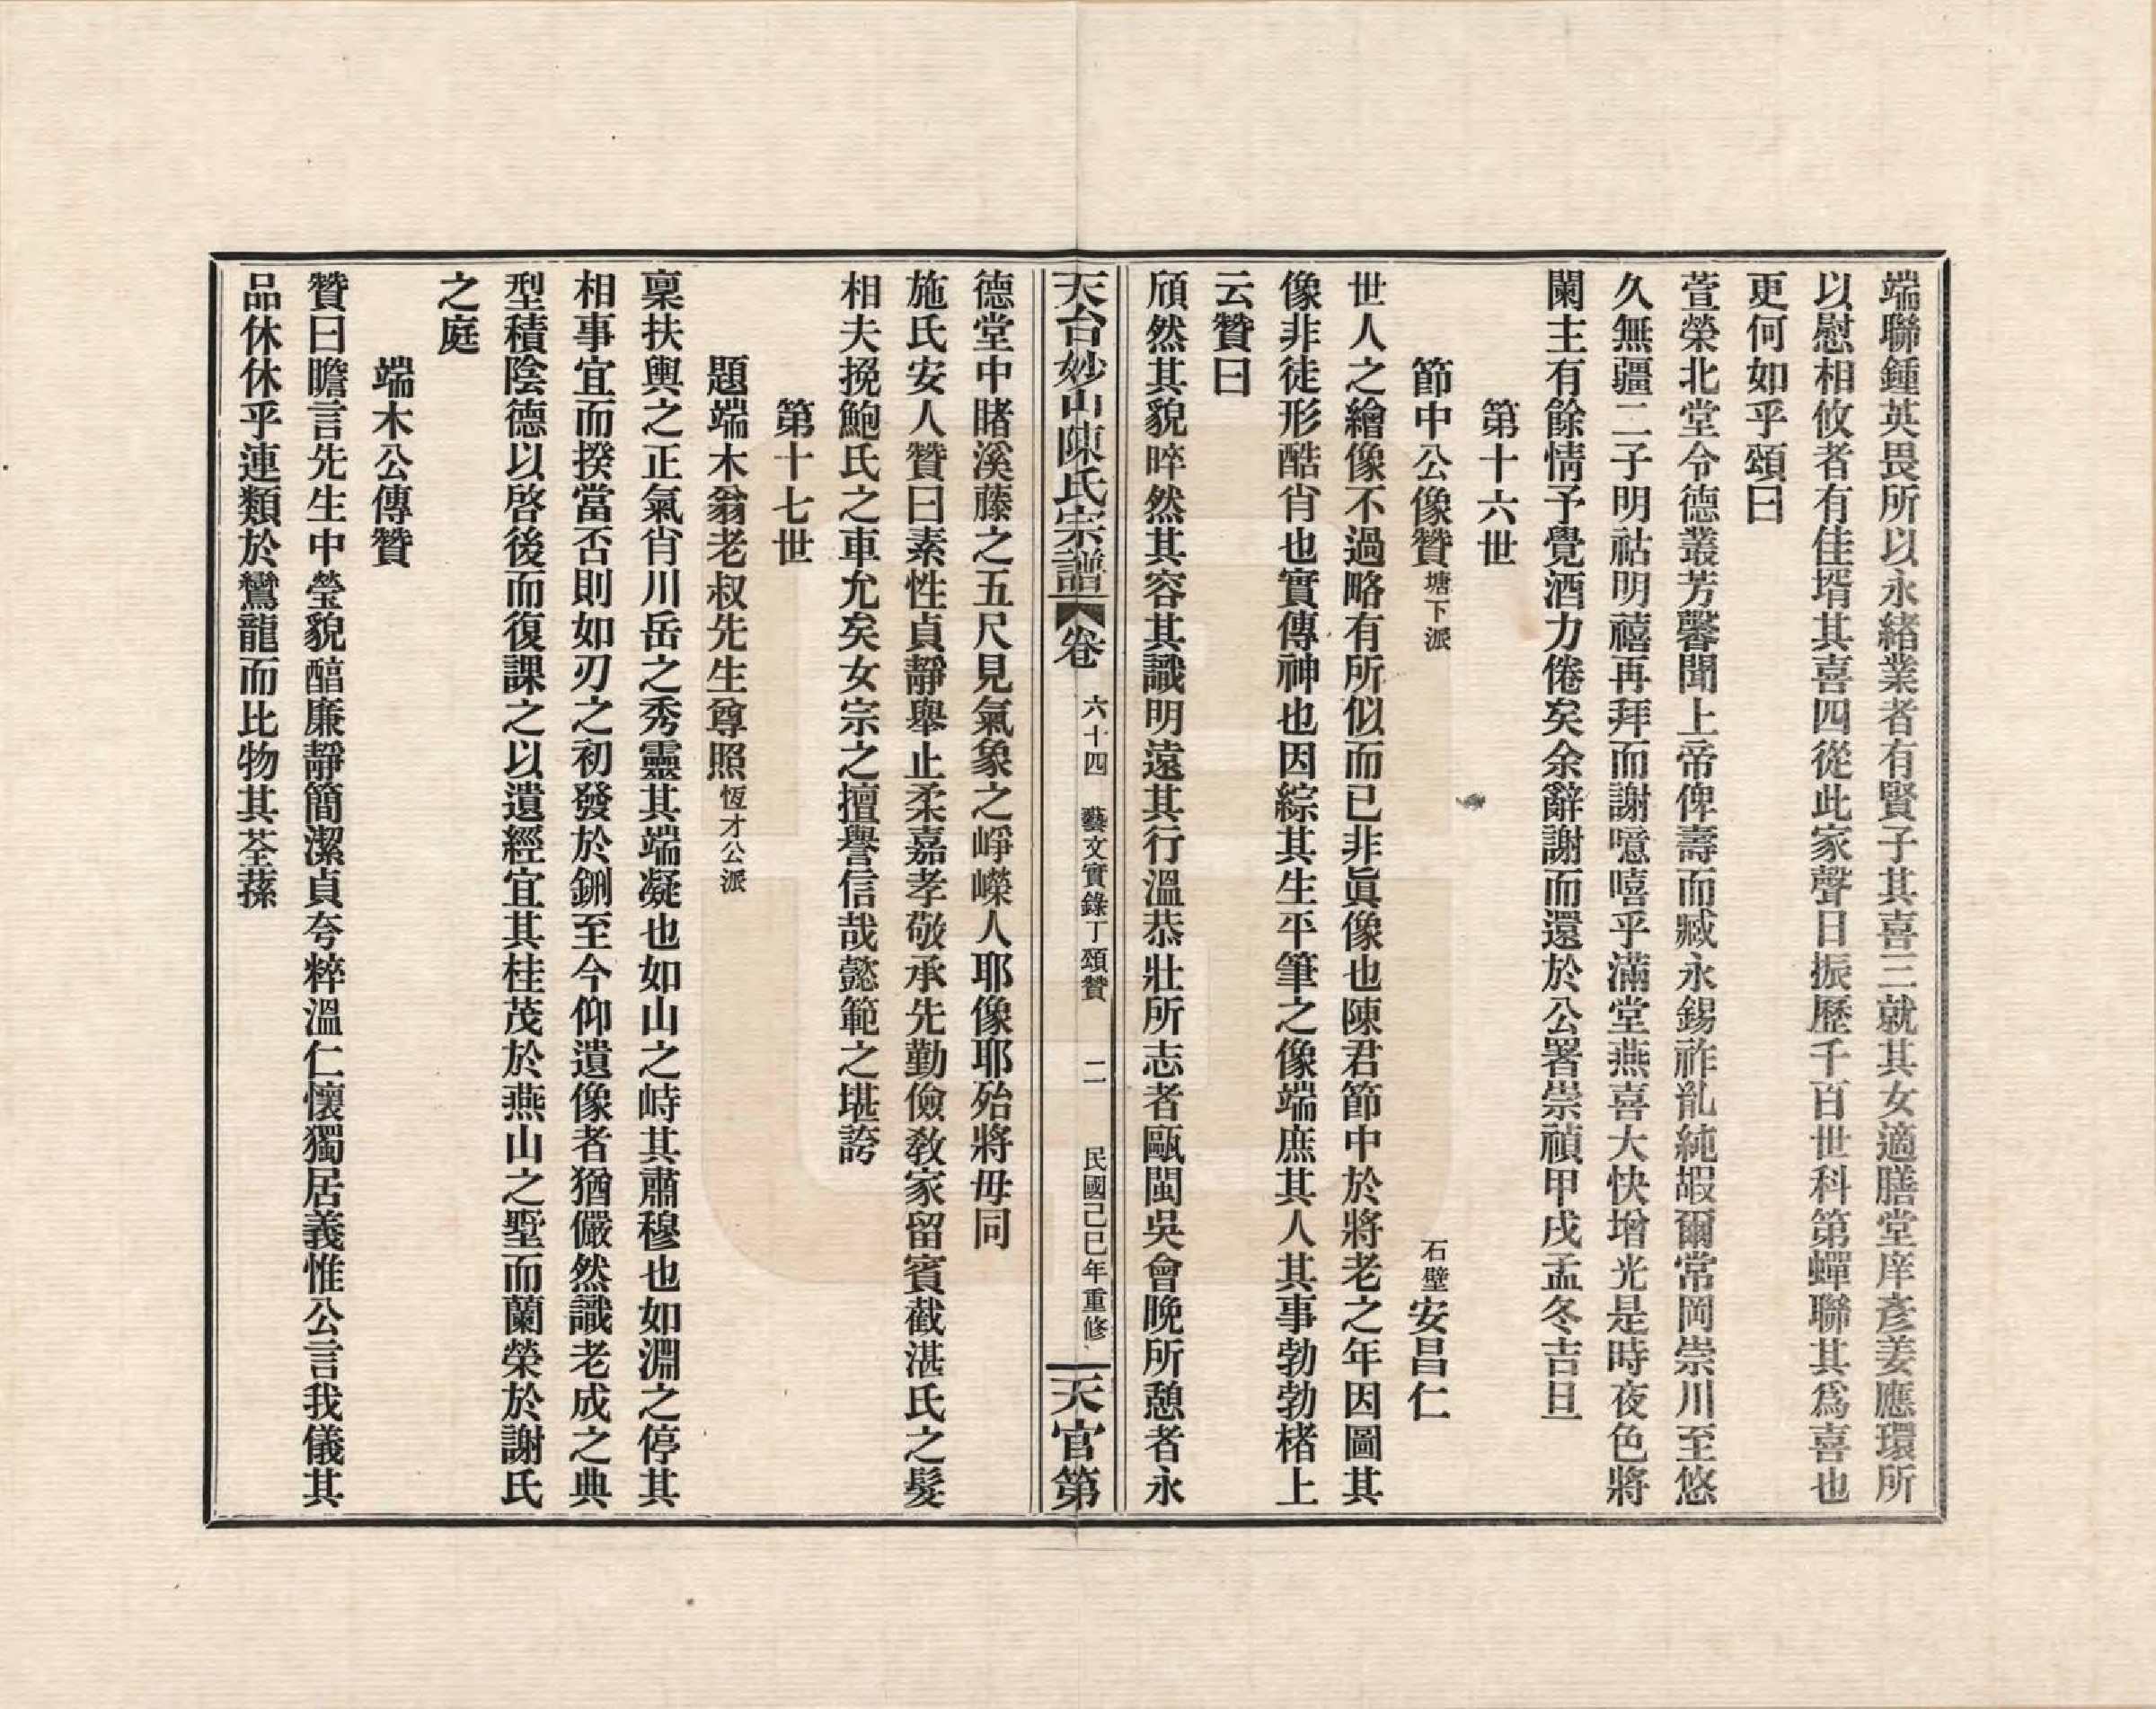 端聯鍾英畏所以永緒業者有賢子其喜三就其女適膳堂庠彥姜應環所
以慰相攸者有佳壻其喜四從此家聲日振歷千百世科第蟬聯其爲喜也
更何如乎頌曰
萱榮北堂令德叢芳馨聞上帝俾壽而臧永錫祚胤純嘏爾常岡崇川至悠
久無疆二子明祜明禧再拜而謝噫嘻乎滿堂燕喜大快增光是時夜色將
闌主有餘情予覺酒力倦矣余辭謝而還於公署崇禎甲戌孟冬吉旦
第十六世
節中公像贊塘下派 石壁安昌仁
世人之繪像不過略有所似而已非眞像也陳君節中於將老之年因圖其
像非徒形酷肖也實傳神也因綜其生平筆之像端庶其人其事勃勃楮上
云贊曰
頎然其貌晬然其容其識明遠其行溫恭壯所志者甌閩吳會晚所憩者永
天台妙山陳氏宗譜 卷 六十四 藝文實錄丁頌贊 二 民國己巳年重修 天官第
德堂中睹溪藤之五尺見氣象之崢嶸人耶像耶殆將毋同
施氏安人贊曰素性貞靜舉止柔嘉孝敬承先勤儉敎家留賓截湛氏之髮
相夫挽鮑氏之車允矣女宗之擅譽信哉懿範之堪誇
第十七世
題端木翁老叔先生尊照恆才公派
稟扶輿之正氣肖川岳之秀靈其端凝也如山之峙其肅穆也如淵之停其
相事宜而揆當否則如刃之初發於鉶至今仰遺像者猶儼然識老成之典
型積陰德以啓後而復課之以遺經宜其桂茂於燕山之墅而蘭榮於謝氏
之庭
端木公傳贊
贊曰瞻言先生中瑩貌醕廉靜簡潔貞夸粹溫仁懷獨居義惟公言我儀其
品休休乎連類於鸞龍而比物其荃蓀